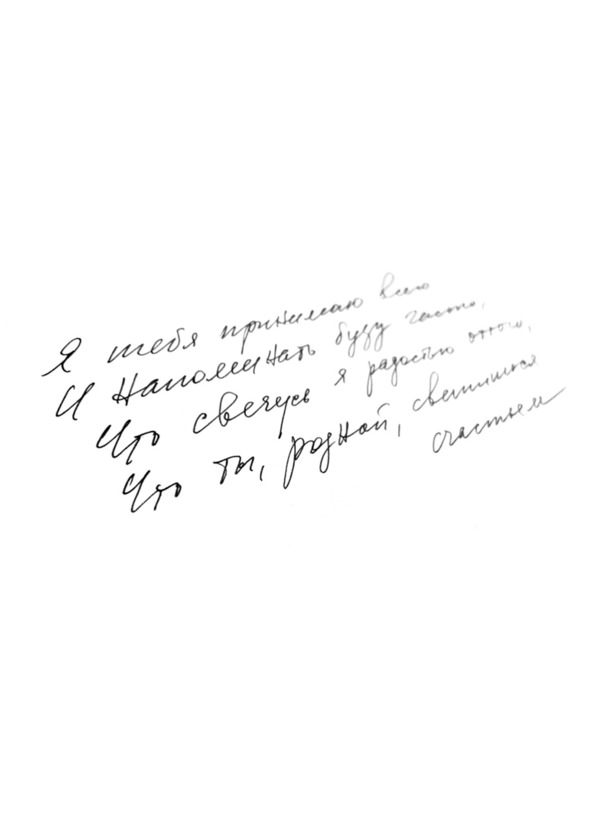 Я тебя принимаю всею
И напоминать буду часто,
Что свечусь я радостью оттого,
Что ты, родной, светишься
счастьем